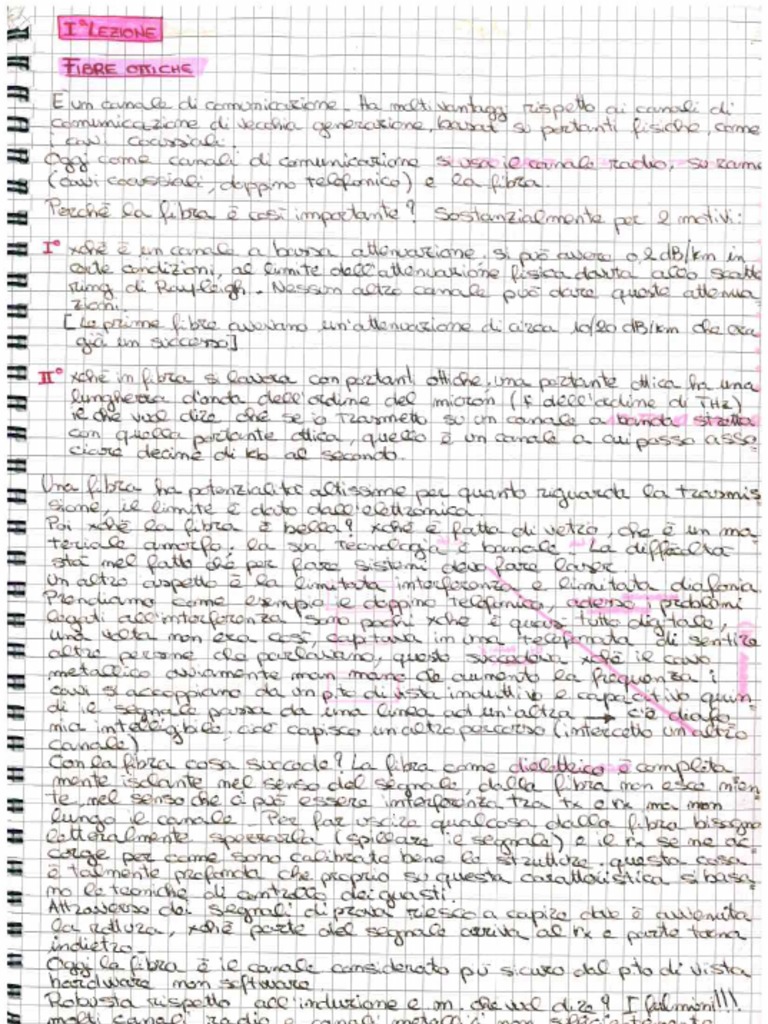 I° LEZIONE
FIBRE OTTICHE
È un canale di comunicazione. Ha molti vantaggi rispetto ai canali di
comunicazione di vecchia generazione, basati su portanti fisiche, come
i cavi coassiali.
Oggi come canali di comunicazione si usa il canale radio, su rame
(cavi coassiali, doppino telefonico) e la fibra.
Perché la fibra è così importante? Sostanzialmente per 2 motivi:
I° xché è un canale a bassa attenuazione, si può avere 0,2 dB/km in
certe condizioni, al limite dell'attenuazione fisica dovuta allo scatte
ring di Rayleigh. Nessun altro canale può dare queste attenua
zioni.
[Le prime fibre avevano un'attenuazione di circa 10/20 dB/km che era
già un successo]
II° xché in fibra si lavora con portanti ottiche, una portante ottica ha una
lunghezza d'onda dell'ordine del micron (f dell'ordine di THz)
il che vuol dire che se io trasmetto su un canale a banda stretta
con quella portante ottica, quello è un canale a cui posso asso
ciare decine di kb al secondo.
Una fibra ha potenzialità altissime per quanto riguarda la trasmis
sione, il limite è dato dall'elettronica.
Poi xché la fibra è bella? xché è fatta di vetro, che è un ma
teriale amorfo, la sua tecnologia è banale. La difficoltà
sta nel fatto che per fare sistemi devo fare laser.
Un altro aspetto è la limitata interferenza e limitata diafonia.
Prendiamo come esempio il doppino telefonico, adesso i problemi
legati all'interferenza sono pochi xché è quasi tutto digitale,
una volta non era così, capitava in una telefonata di sentire
altre persone che parlavano, questo succedeva xché il cavo
metallico ovviamente man mano che aumento la frequenza i
cavi si accoppiano da un pto di vista induttivo e capacitivo quin
di il segnale passa da una linea ad un'altra → c'è diafo
nia intelligibile, cioè capisco un altro percorso (intercetto un altro
canale)
Con la fibra cosa succede? La fibra come dielettrico è completa
mente isolante nel senso del segnale, dalla fibra non esce nien
te, nel senso che ci può essere interferenza tra tx e rx ma non
lungo il canale. Per far uscire qualcosa dalla fibra bisogna
letteralmente spezzarla (spillare il segnale) e il rx se ne ac
corge per come sono calibrate bene le strutture. questa cosa
è talmente profonda che proprio su questa caratteristica si basa
no le tecniche di controllo dei guasti.
Attraverso dei segnali di prova riesco a capire dove è avvenuta
la rottura, xché parte del segnale arriva al rx e parte torna
indietro.
Oggi la fibra è il canale considerato più sicuro dal pto di vista
hardware non software.
Robusta rispetto all'induzione e.m. che vuol dire? [fulmini!!!
molti canali radio e canali metallici non